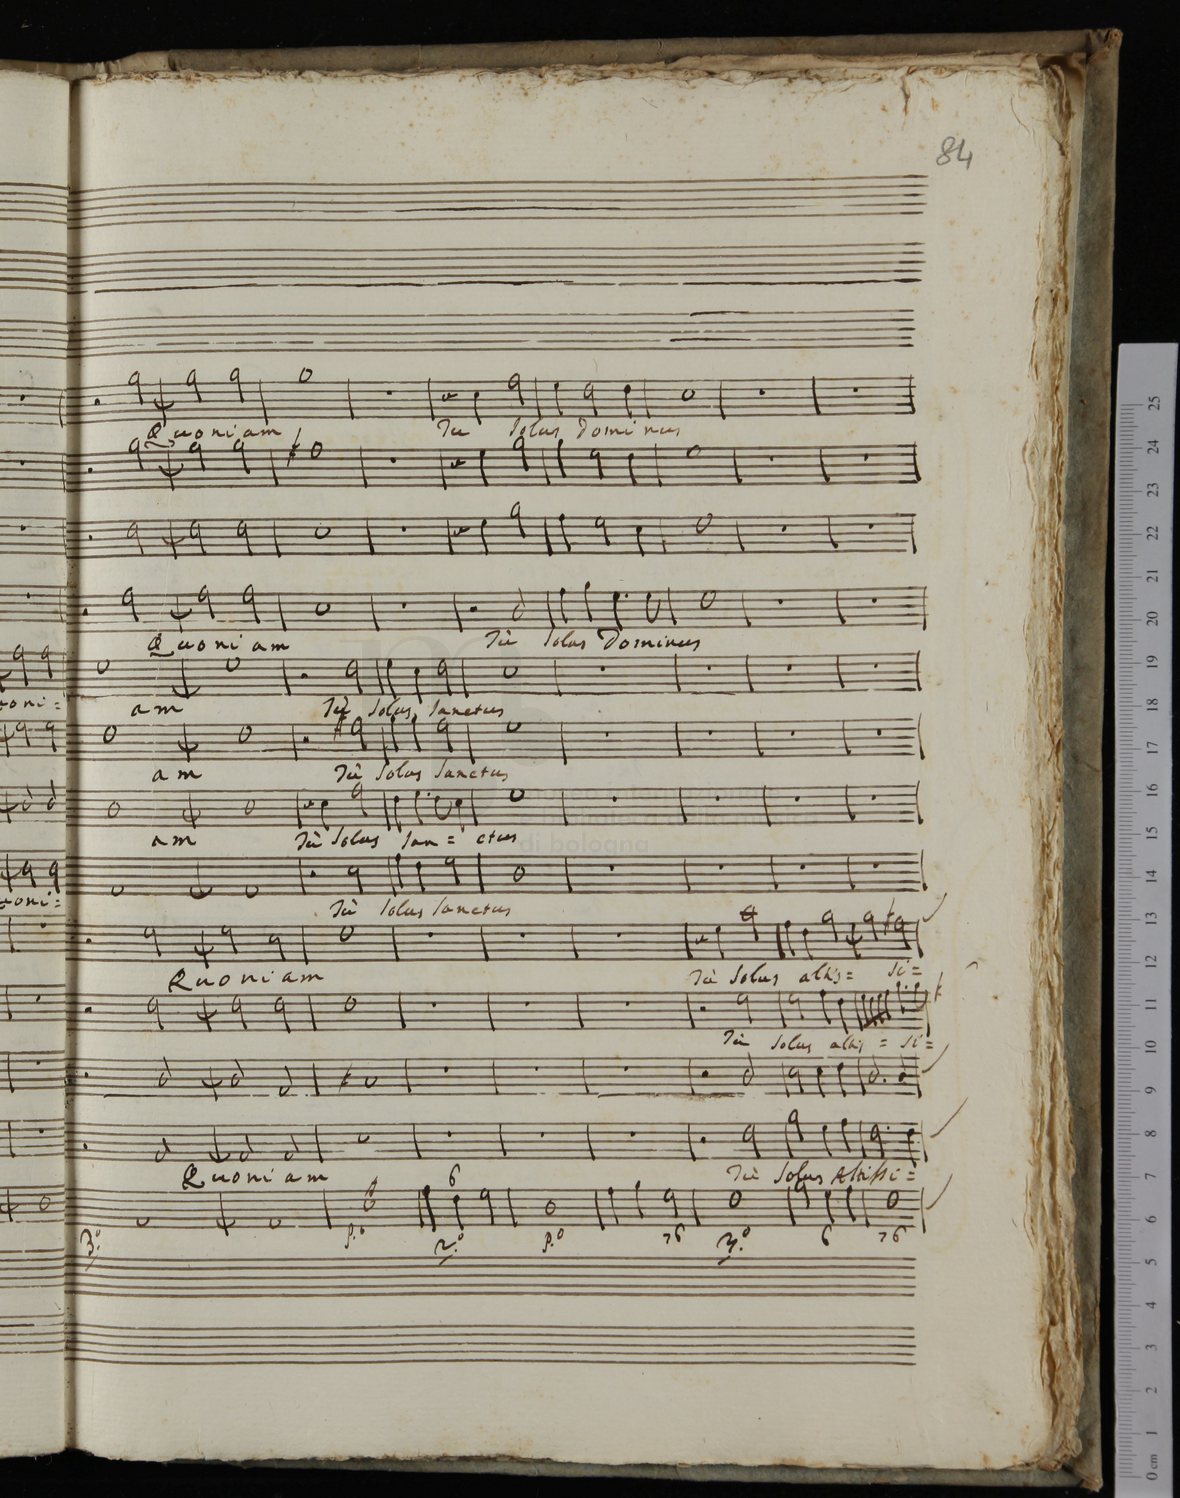 84
Quoniam Tu solus Dominus
Quoniam Tù solus Dominus
uoni= am Tù solus sanctus
am Tù solus sanctus
am Tù solus san= ctus
uoni= Tù solus sanctus
Quoniam Tù solus altis= si=
Tù solus altis= si=
Quoniam 6 Tù solus Altissi=
3.º p.º 2.º p.º 76 3.º 6 76
museo internazionale
e biblioteca della musica
di bologna
25
24
23
22
21
20
19
18
17
16
15
14
13
12
11
10
9
8
7
6
5
4
3
2
1
0 cm